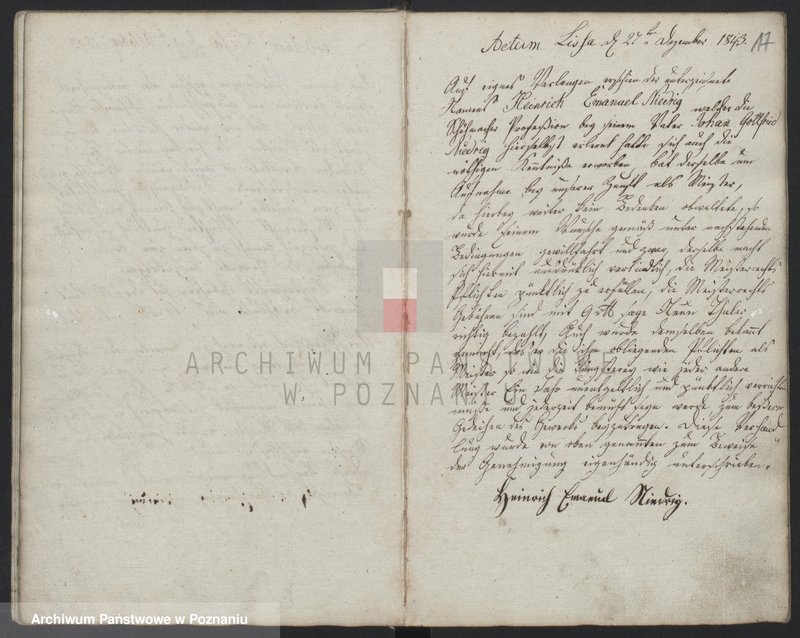 Actum Lissa d 27ten Dezember 1843. 17
Auf eigenes Verlangen erschien der unterzeichnete
Namens Heinrich Emanuel Niedrig welcher die
Schuhmacher Profession bey seinem Vater Johan Gottfried
Niedrig hierselbst erlernt hatte sich auch die
nöthigen Kentnisse erworben, bat derselbe um
Aufnahme bey unserer Zunft als Meister,
da hierbey weiter kein Bedenken obwaltete, so
wurde seinem Wunsche gemäß unter nachstehenden
Bedingungen gewillfahrt und zwar, derselbe macht
sich hiermit ausdrücklich verbindlich, die Meisterrechts
Pflichten pünktlich zu erfüllen, die Meisterrechts
Gebühren sind mit 9 rtl sage Neun Thaler
richtig bezahlt, Auch wurde demselben bekannt
gemacht, daß er die ihm obliegenden Pflichten als
Meister so wie jeder andere
Meister Ein Jahr unentgeltlich und pünktlich verrichten
müsse und jederzeit bemüht seyn werde zum bessern
Gedeihen des Gewerks beyzutragen. Diese Verhand
lung wurde von oben genannten zum Beweise
der Genehmigung eigenhändig unterschrieben.
Heinrich Emanuel Niedrig.
ARCHIWUM PAŃSTWOWE
W POZNANIU
Archiwum Państwowe w Poznaniu